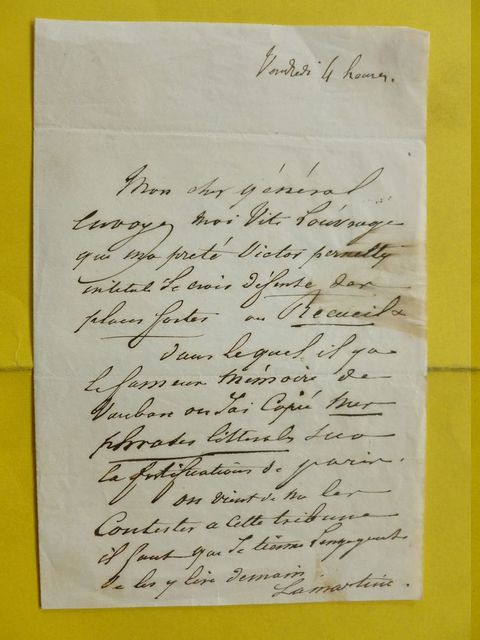 Vendredi 4 heures.
Mon cher général
envoyez moi Vite L'ouvrage
que m'a preté Victor pernetty
intitulé Je crois défense des
places fortes ou Recueil &
dans lequel il y a
le fameux Mémoire de
Vauban ou J'ai Copié mes
phrases litterales sur
la fortifications de paris.
on vient de me les
Contester a Cette tribune
il faut que Je tienne
de les y lire demain
Lamartine.